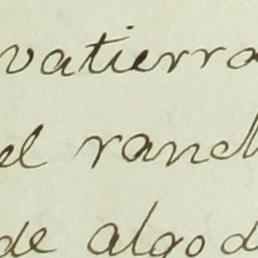 vatierra
el ranch
de algod